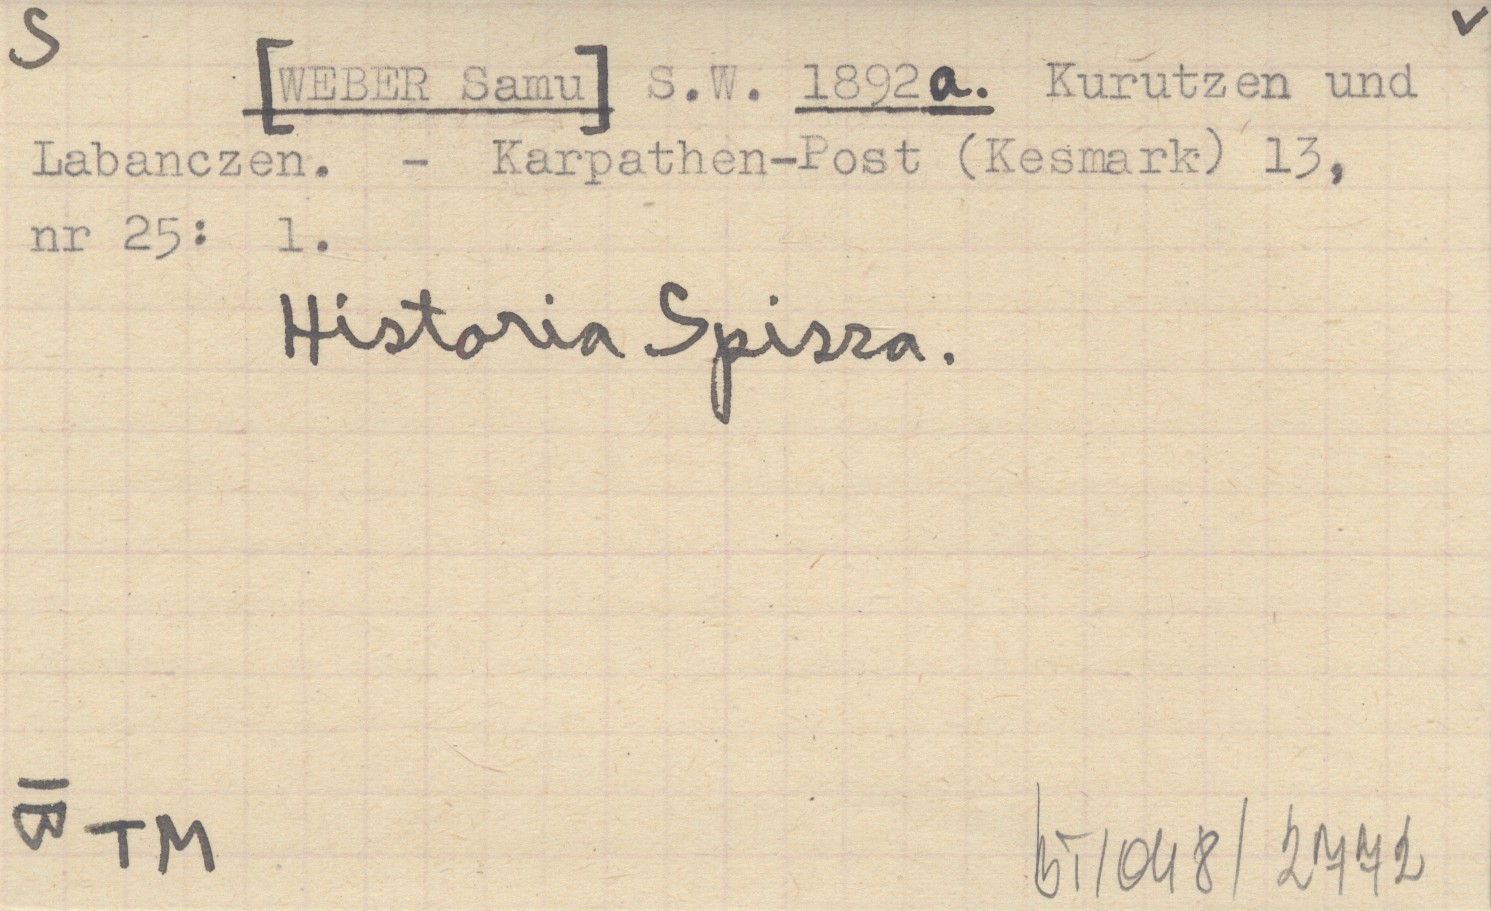 S
[WEBER Samu] S.W. 1892a. Kurutzen und
Labanczen. - Karpathen-Post (Kesmark) 13,
nr 25: 1.
Historia Spisza.
TM
bT/048/2772